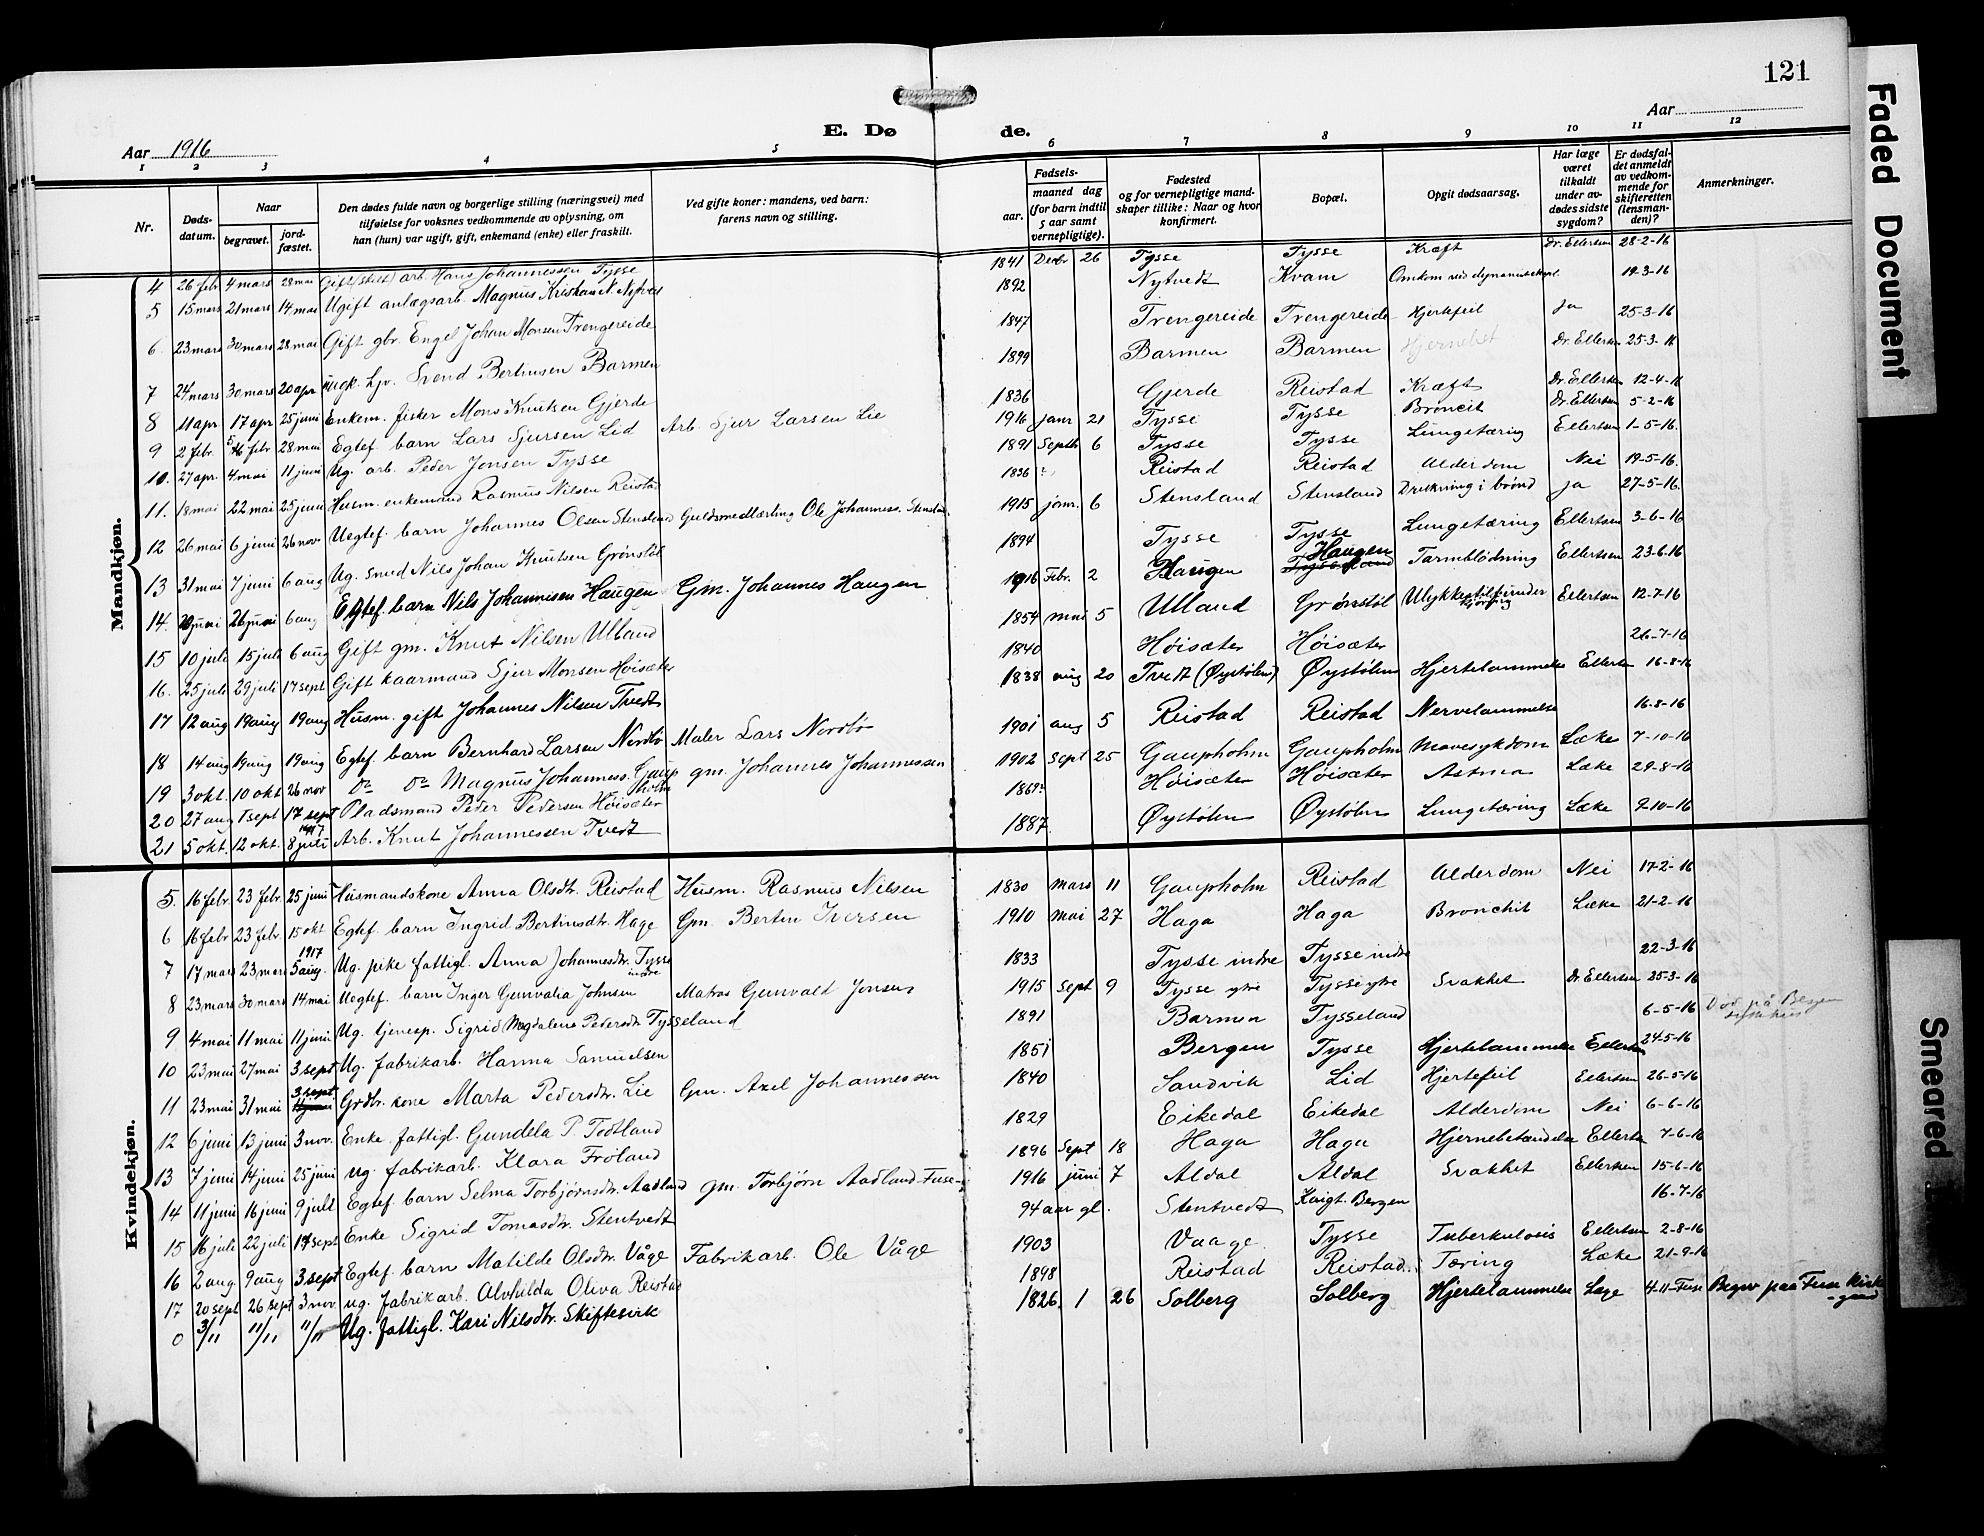 121
Aar 1916
E. Døde.
Aar
1 2 3 4 5 6 7 8 9 10 11 12
Nr.
Døds-datum.
Naar
begravet.
jord-fæstet.
Den dødes fulde navn og borgerlige stilling (næringsvei) med tilføielse for voksnes vedkommende av oplysning, om han (hun) var ugift, gift, enkemand (enke) eller fraskilt.
Ved gifte koner: mandens, ved barn: farens navn og stilling.
Fødsels-
aar.
maaned dag
(for barn indtil 5 aar samt vernepligtige).
Fødested og for vernepligtige mandskaper tillike: Naar og hvor konfirmert.
Bopæl.
Opgit dødsaarsag.
Har læge været tilkaldt under avdødes sidste sygdom?
Er dødsfaldet anmeldt av vedkommende for skifteretten (lensmanden)?
Anmerkninger.
Mandkjøn.
4 26 febr 4 mars 28 mai Gift (skilt) arb. Hans Johannessen Tysse 1841 Decbr 26 Tysse Tysse Kræft Dr. Ellertsen 28-2-16
5 15 mars 21 mars 14 mai Ugift anlægsarb. Magnus Kristian N. Nytvedt 1892 Nytvedt Kvam Omkom ved 19-3-16
6. 23 mars 30 mars 28 mai Gift gbr. Engel Johan Monsen Trengereide 1847 Trengereide Trengereide Hjertefeil Ja 25-3-16
7 24 mars 30 mars 20 apr Svend Bertinusen Barmen 1899 Barmen Barmen Dr. Ellertsen 25-3-16
8 11 apr 17 apr 25 juni Enkem. fisker Mons Knutsen Gjerde 1836 Gjerde Reistad Kræft Dr. Ellertsen 12-4-16
9 2 febr. febr 28 mai Egtef barn Lars Sjursen Lid Arb. Sjur Larsen Lie 1916 janr 21 Tysse Tysse Broncit Dr. Ellertsen 5-2-16
10. 27 apr. 4 mai 11 juni Ug. arb. Peder Jonsen Tysse 1891 Septb 6 Tysse Tysse Lungetæring Ellertsen 1-5-16.
11. 18 mai 22 mai 25 juni Husm. enkemand Rasmus Nilsen Reistad 1836 ? Reistad Reistad Alderdom Nei 19-5-16.
12 26 mai 6 juni 26 nov Uegtef. barn Johannes Olsen Stensland Guldsmedlærling Ole Johanness. Stensland 1915 janr. 6 Stensland Stensland Drukning i brønd ja 27-5-16.
13 31 mai 7 juni 6 aug Ug. smed Nils Johan Knutsen Grønstøl 1894 Tysse Tysse Lungetæring Ellertsen 3-6-16
14. 20 juni 26 juni 6 aug Egtef. barn Nils Johannesen Haugen Gm. Johannes Haugen 1916 Febr. 2 Haugen Haugen Tarmblødning Ellertsen 23-6-16
15 10 juli 15 juli 6 aug Gift gm. Knut Nilsen Ulland 1854 mai 5 Ulland Grønstøl Ulykkestilf. under kjøring Ellertsen 12-7-16
16. 25 juli 29 juli 17 sept Gift kaarmand Sjur Monsen Høisæter 1840 Høisæter Høisæter 26-7-16
17 12 aug 19 aug 19 aug Husm. gift Johannes Nilsen Tvedt 1838 aug 20 Tvedt (Øystølen) Øystølen Hjertelammelse Ellertsen 16-8-16
18 14 aug 19 aug 19 aug Egtef. barn Bernhard Larsen Nordbø Maler Lars Nordbø 1901 aug 5 Reistad Reistad Nervelammelse 16-8-16
19 3 okt. 10 okt 26 nov Do Do Magnus Johanness. Gaupholm gm. Johannes Johannessen 1902 Sept 25 Gaupholm Gaupholm Mavesykdom Læke 7-10-16
20 27 aug 1 sept 17 sept Pladsmand Peder Pedersen Høisæter 1869? Høisæter Høisæter Astma Læke 29-8-16
21 5 okt. 12 okt. 1917 8 juli Arb. Knut Johannessen Tvedt 1887. Øystølen Øystølen Lungetæring Læke 9-10-16
Kvindekjøn.
5. 16 febr. 23 febr. 25 juni Husmandskone Anna Olsdtr. Reistad Husm. Rasmus Nilsen 1830 mars 11 Gaupholm Reistad Alderdom Nei 17-2-16
6 16 febr 23 febr. 15 okt Egtef. barn Ingrid Bertinusdtr. Hage Gm. Bertin Iversen 1910 mai 27 Haga Haga Bronchit Læke 21-2-16
7 17 mars 23 mars 1917 5 aug. Ug. pike fattigl. Anna Johannesdtr. Tysse indre 1833 Tysse indre Tysse indre 22-3-16
8 23 mars 30 mars 14 mai Uegtef. barn Inger Gunvalia Johnsen Matros Gunvald Jonsen 1915 Sept 9 Tysse ytre Tysse ytre Svakhet Dr. Ellertsen 25-3-16
9 4 mai 11 mai 11 juni Ug. tjenesp. Sigrid Magdalena Pedersdtr Tysseland 1891 Barmen Tysseland 6-5-16 Død på Bergen sykehus
10 23 mai 27 mai 3 sept Ug. fabrikarb. Hanna Samuelsen 1851 Bergen Tysse Hjertelammelse Ellertsen 24-5-16
11 23 mai 31 mai 3 sept Grdbr. kone Marta Pedersdtr. Lie Gm. Axel Johannessen 1840 Sandvik Lid Hjertefeil Ellertsen 26-5-16
12 6 juni 13 juni 3 nov. Enke fattigl. Gundela P. Todtland 1829 Eikedal Eikedal Alderdom Nei 6-6-16
13 7 juni 14 juni 25 juni ug. fabrikarb. Klara Frøland 1896 Sept 18 Haga Haga Hjernebetændelse Ellertsen 7-6-16
14 11 juni 16 juni 9 juli Egtef. barn Selma Torbjørnsdtr. Aadland gm. Torbjørn Aadland Fuse 1916 juni 7 Aldal Aldal Svakhet Ellertsen 15-6-16
15 16 juli 22 juli 17 sept Enke Sigrid Tomasdtr. Stentvedt 94 aar gl. Stentvedt Bergen 16-7-16
16 2 aug 9 aug 3 sept Egtef. barn Matilde Olsdtr. Våge Fabrikarb. Ole Våge 1903 Vaage Tysse Tuberkulosis Ellertsen 2-8-16
17 20 sept 26 sept 3 nov. ug. fabrikarb. Alvhilda Oliva Reistad 1898 Reistad Reistad Tæring Læke 21-9-16
0 3/11 11/11 11/11 Ug. fattigl. Kari Nilsdtr. Skiftesvik 1826 1 26 Solberg Solberg Hjertelammelse Læge 4-11-Fuse Begr paa Fuse kirkegaard
Faded Document
Smeared